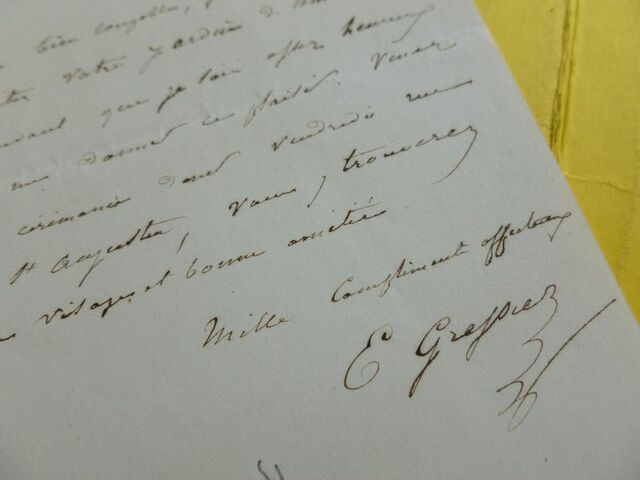 bien coupable,
votre jardin de
que je sois assez heureux
me donner ce plaisir. Venez
cérémonie donc vendredi rue
St Augustin, vous y trouverez
visage et bonne amitié
Mille compliments affectueux
E Gressier